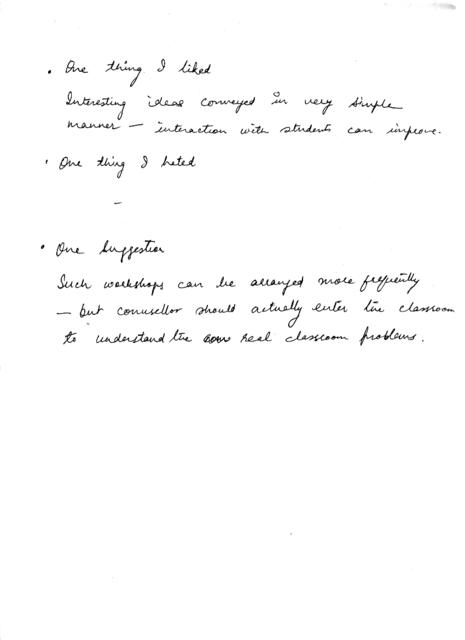 • One thing I liked
Interesting ideas conveyed in very simple
manner – interaction with students can improve.
• One thing I hated
–
• One Suggestion
Such workshops can be arranged more frequently
– but counsellor should actually enter the classroom
to understand the real classroom problems.